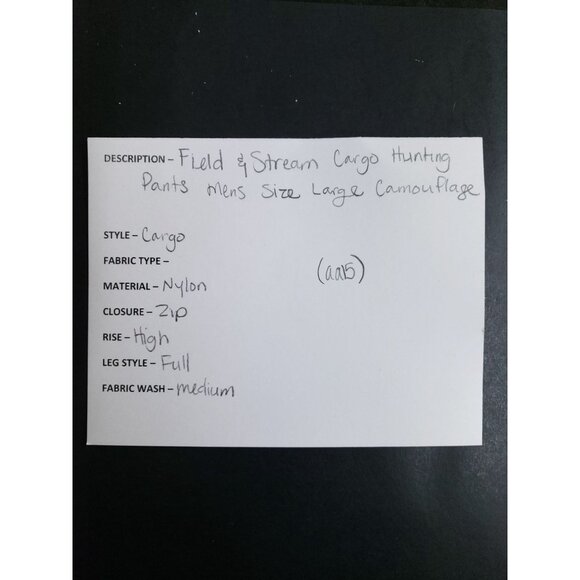 DESCRIPTION - Field & Stream Cargo Hunting
Pants Mens Size Large Camouflage
STYLE - Cargo
FABRIC TYPE -
(aa15)
MATERIAL - Nylon
CLOSURE - Zip
RISE - High
LEG STYLE - Full
FABRIC WASH - medium